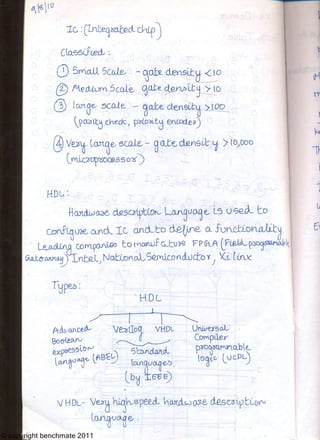 4/8/10
Ic :(Integrated chip)
Classified :
① Small Scale - gate density <10
② Medium Scale gate density > 10
③ large scale - gate density >100
(parity check, priority encoder)
④ Very large scale - gate density > 10,000
(microprocessor)
HDL :
Hardware description Language is used to
configure and IC and to define a functionality
Leading companies to manufacture FPGA (Field programmable
Gate array) Intel, National Semiconductor, Xilinx
Types:
HDL
Advanced Boolean expression language (ABEL)
Verilog VHDL
Standard languages
(by IEEE)
Universal Compiler programmable logic (UCPL)
VHDL- Very high speed hardware description
language.
©copyright benchmate 2011